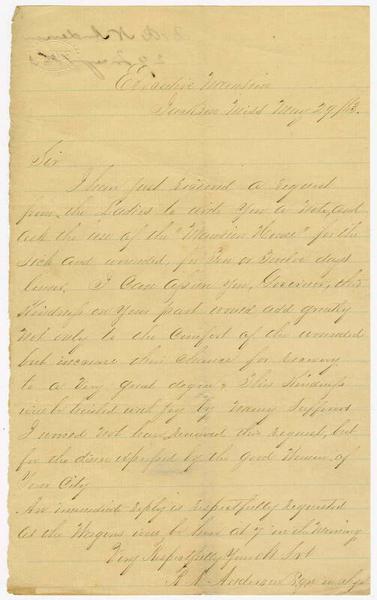 Executive Mansion
Jackson Miss May 29/63.
Sir
I have just received a request
from the Ladies to write you a Note, and
ask the use of the "Mansion House" for the
Sick and wounded, for Ten or Twelve days
I Can assure you, Governor, this
Kindness on your part would add greatly
not only to the Comfort of the wounded
but increase their Chance for recovery
to a very great degree & This Kindness
will be hailed with joy by many Sufferers
I would not have renewed this request, but
for the desire expressed by the good Women of
Your City
An immediate reply is respectfully requested
as the Wagons will be here at 7 in the Morning
Very Respectfully Your Obt Svt
Anderson